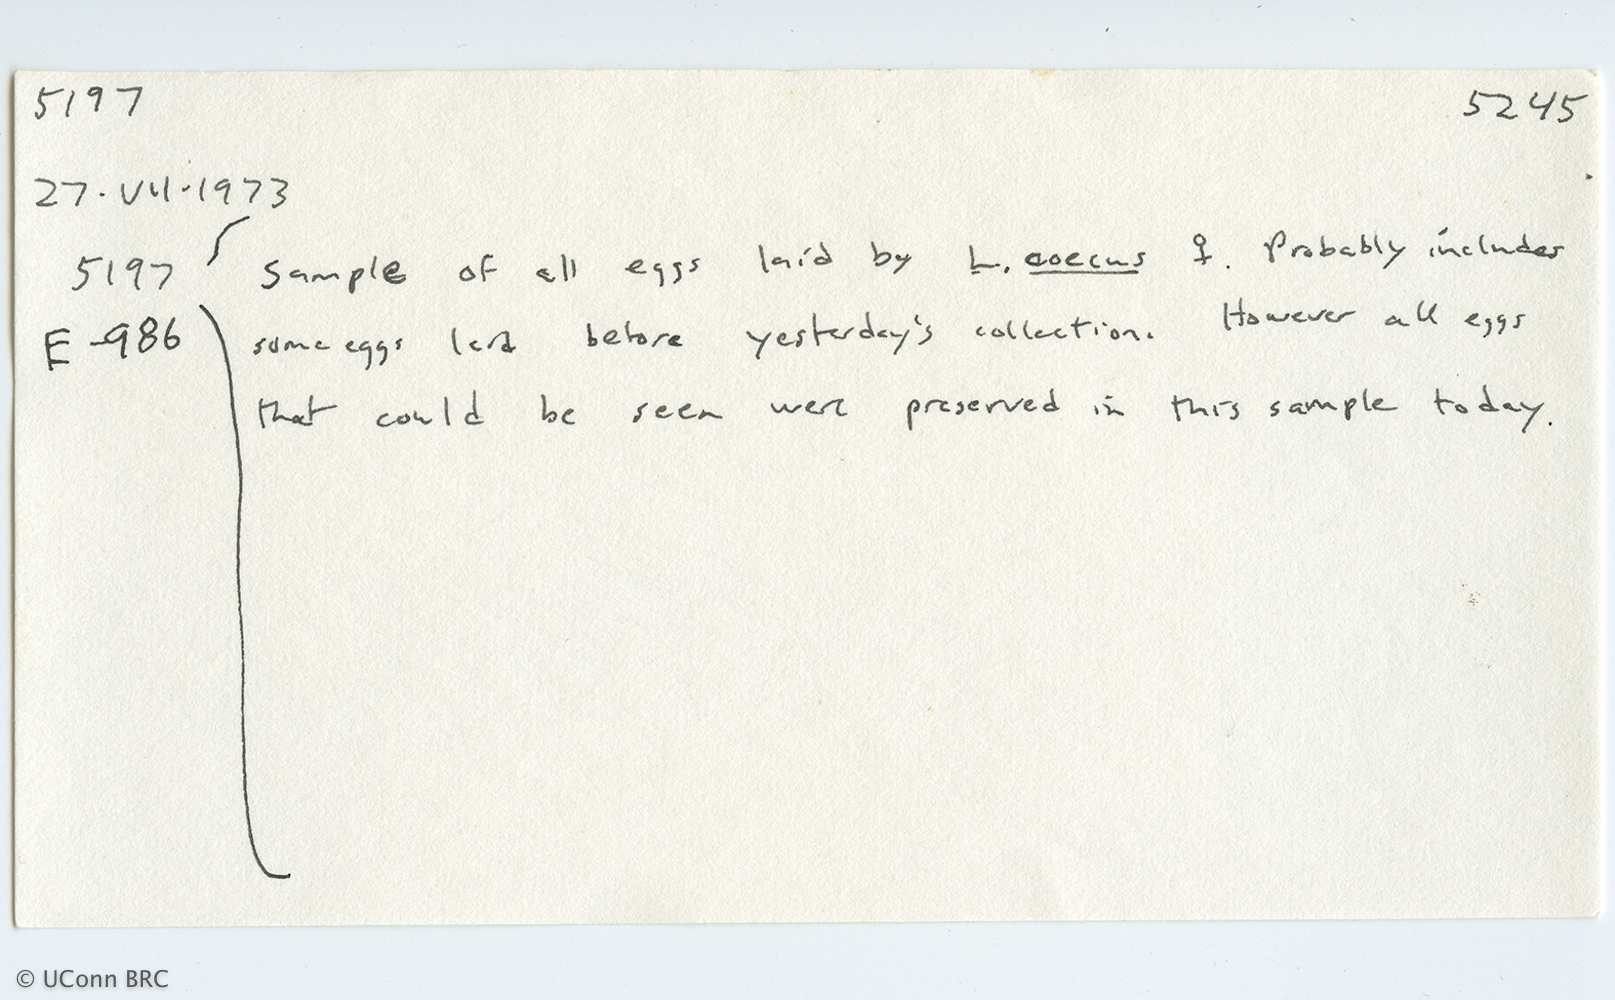 5197 5245
27·VII·1973
5197 Sample of all eggs laid by L. coecus ♀. Probably includes
E-986 some eggs laid before yesterday's collection. However all eggs
that could be seen were preserved in this sample today.
© UConn BRC